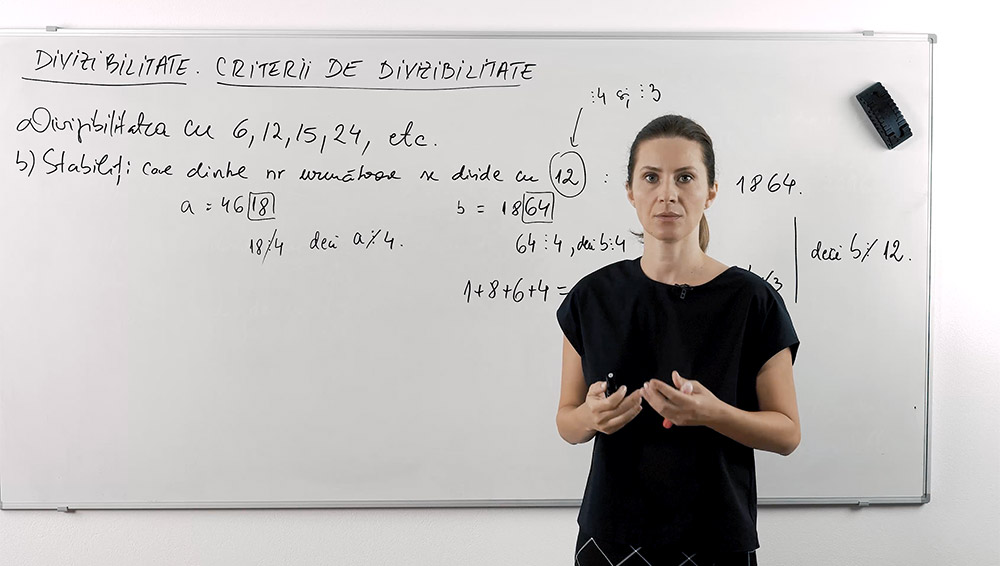 DIVIZIBILITATE. CRITERII DE DIVIZIBILITATE
⋮4 și ⋮3
a) Divizibilitatea cu 6, 12, 15, 24, etc.
b) Stabiliți care dintre nr următoare se divide cu 12 : 1864.
a = 4618 b = 1864
18 ⋮̸ 4 deci a ⋮̸ 4. 64 ⋮ 4, deci b ⋮ 4 deci b ⋮̸ 12.
1+8+6+4 = ⋮̸ 3